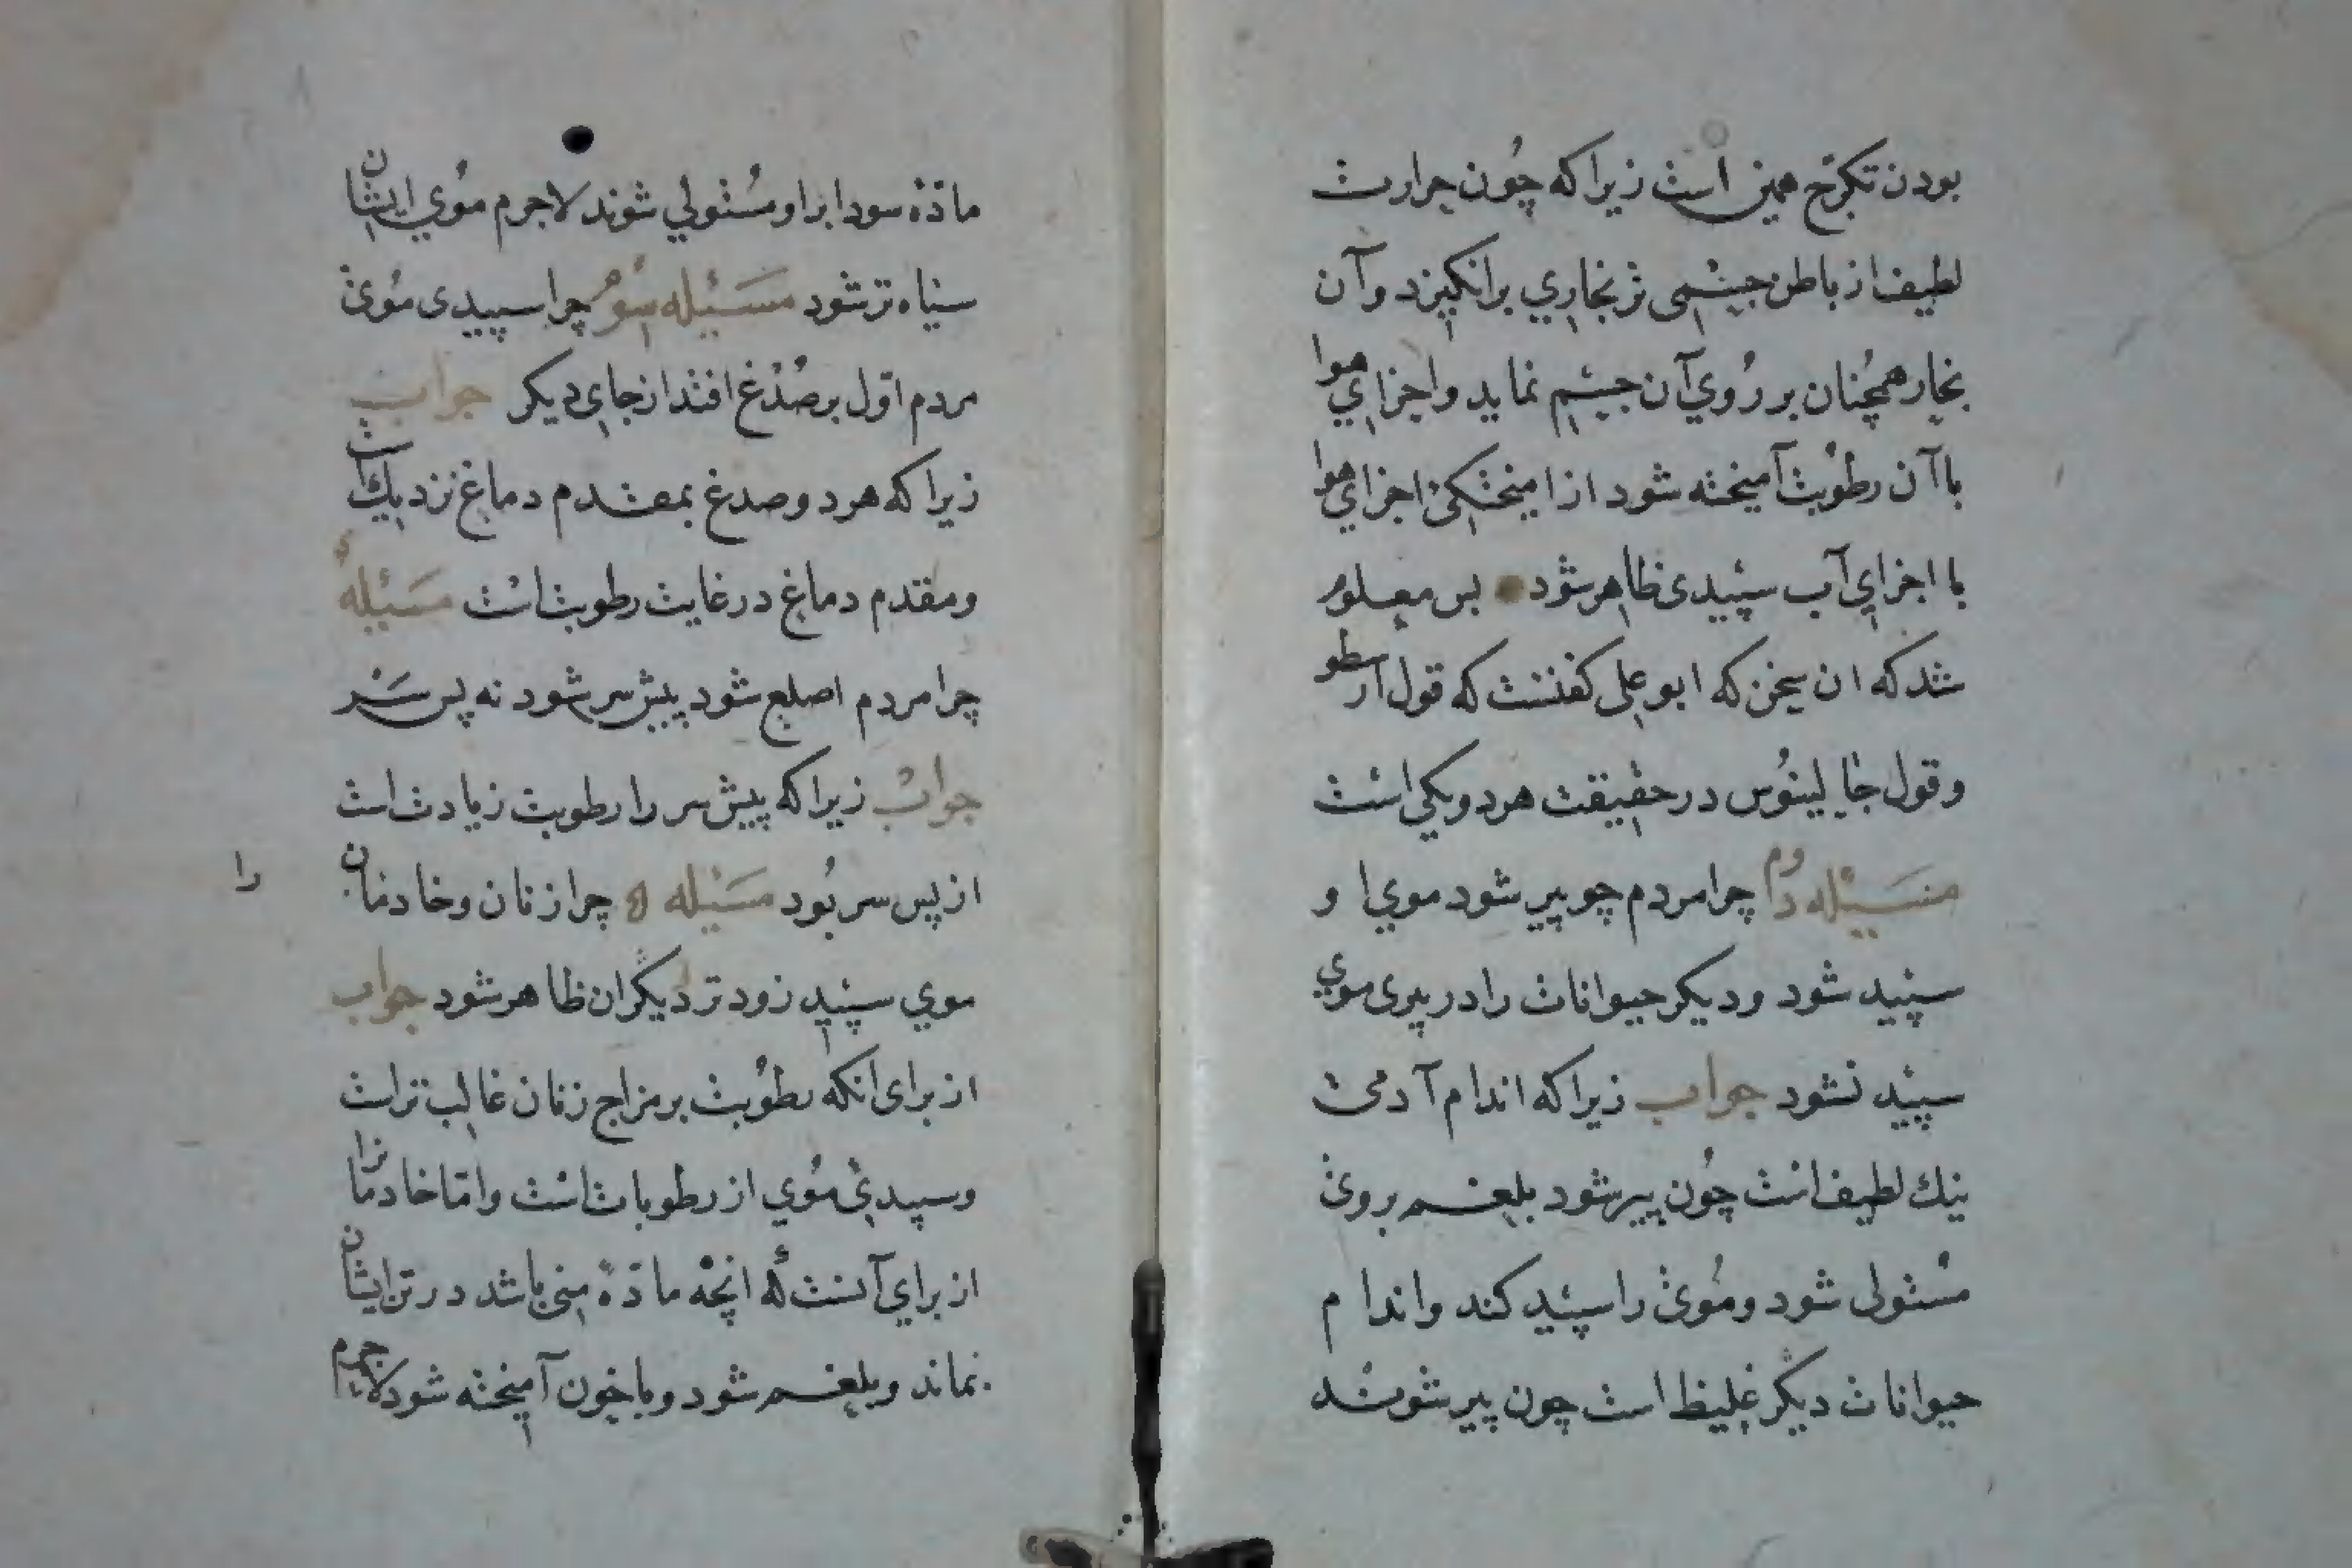 بودن تکرّج همین است زیرا که چون حرارت
لطیف از باطن جسمی تر بخاری برانکیزد و آن
بخار همچنان بر روی آن جسم نماید و اجزای هوا
با آن رطوبت آمیخته شود از امیختکی اجزای هوا
با اجزای آب سپیدی ظاهر شود بس معلوم
شد که ان سخن که ابو علی کفتست که قول ارسطو
و قول جالینوس در حقیقت هر دو یکی است
مسئله دوم چرا مردم چو پیر شود موی او
سپید شود و دیکر حیوانات را در پیری موی
سپید نشود جواب زیرا که اندام آدمی
نیك لطیف است چون پیر شود بلغم بر وی
مستولی شود و موی را سپید کند و اندام
حیوانات دیکر غلیظ است چون پیر شوند
مادّه سودا بر او مستولی شوند لاجرم موی ایشان
سیاه تر شود مسئله سوم چرا سپیدی موی
مردم اوّل بر صدغ افتد از جای دیکر جواب
زیرا که هر دو صدغ بمقدم دماغ نزدیك است
و مقدم دماغ در غایت رطوبت است مسئله
چرا مردم اصلع شود پیش سر شود نه پس سر
جواب زیرا که پیش سر را رطوبت زیادت است
از پس سر بود مسئله ه چرا زنان و خادمان را
موی سپید زود تر دیکران ظاهر شود جواب
از برای انکه رطوبت بر مزاج زنان غالب تر است
و سپیدی موی از رطوبات است و امّا خادمانرا
از برای آنست که انچه مادّه منی باشد در تن ایشان
نماند و بلغم شود و با خون آمیخته شود لاجرم